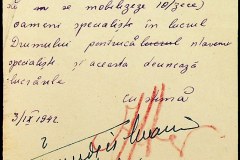 să se mobilizeze 10/zece/
oameni specialiști în lucrul
Drumului pentrucă lucrul n'avem
specialiste și aceasta deunează
lucrările
cu stimă
3/IX 1942